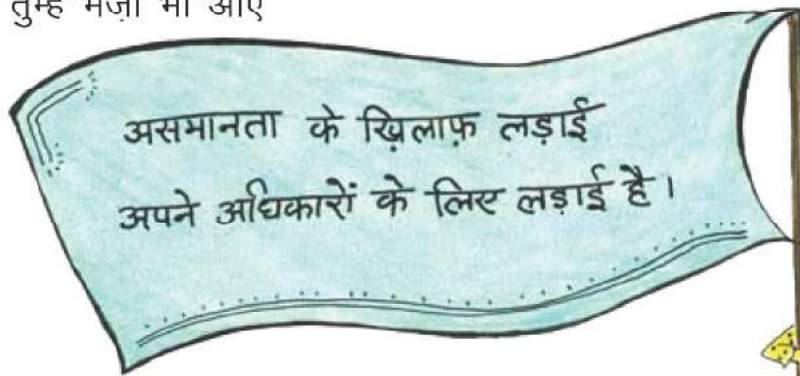 तुम्हें मज़ा भी आए
असमानता के ख़िलाफ़ लड़ाई
अपने अधिकारों के लिए लड़ाई है।